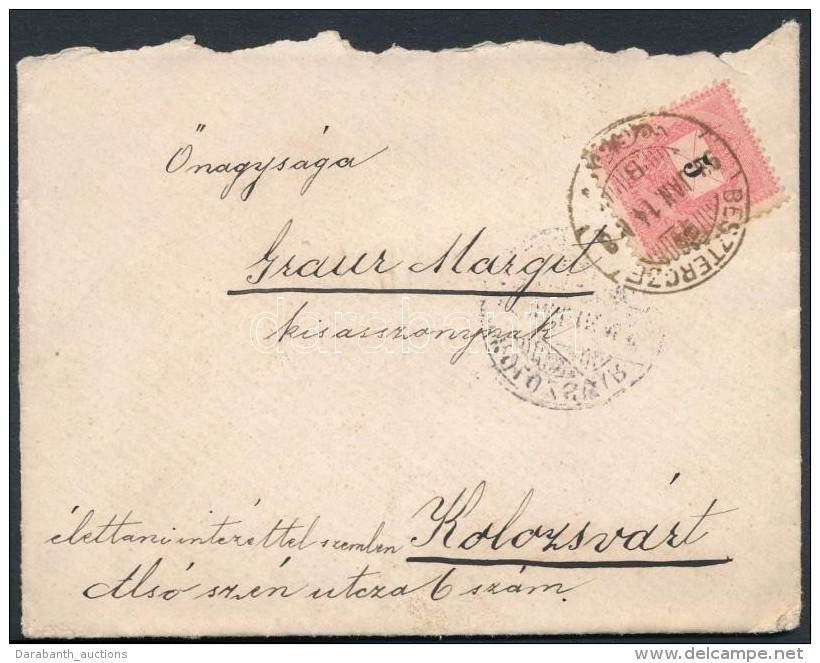 Őnagysága
Graur Margit
kisasszonynak
élettani intézettel szemben Kolozsvárt
Alsó szén utcza 6 szám.
5
BESZTERCZE
JAN. 14
B
KOLOZSVÁR
darabanth
Darabanth_auctions